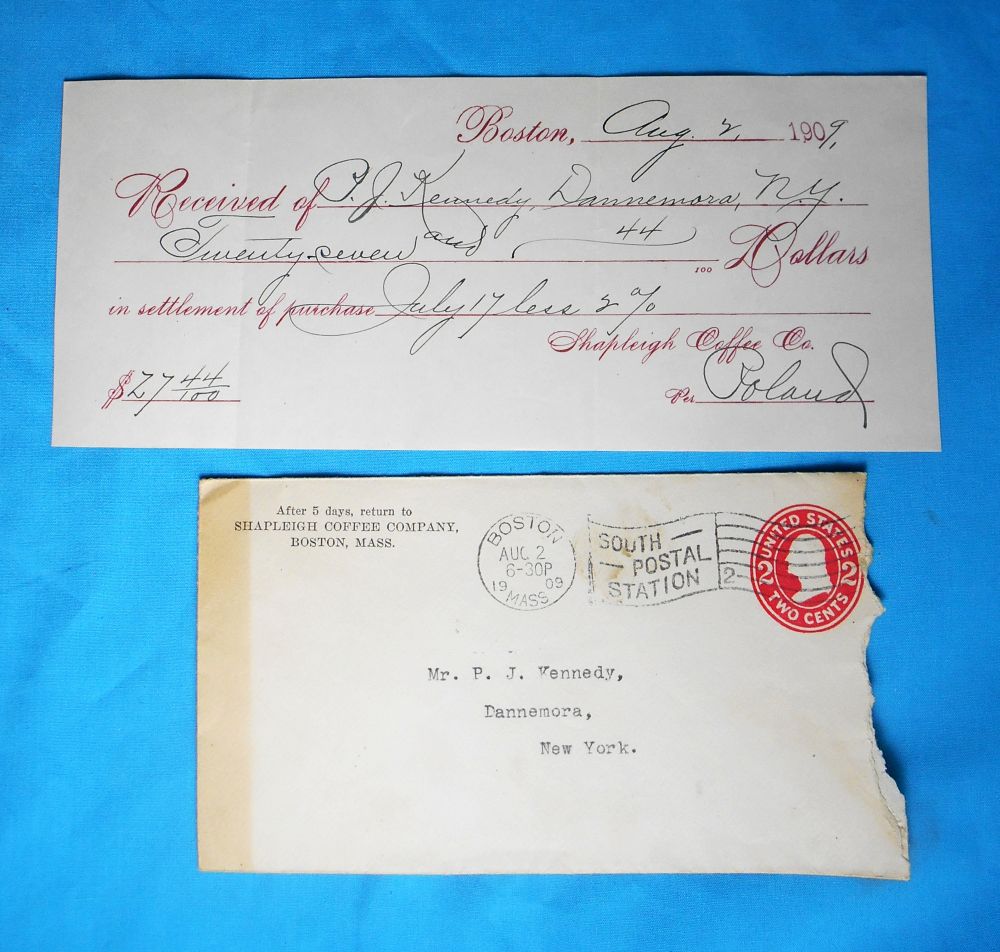 Boston, Aug. 2, 1909,
Received of P. J. Kennedy, Dannemora, N.Y.
Twenty-seven and 44/100 Dollars
in settlement of purchase July 17 less 2 %
Shapleigh Coffee Co.
$27 44/100 Per Poland
After 5 days, return to
SHAPLEIGH COFFEE COMPANY,
BOSTON, MASS.
BOSTON
AUG 2
6-30P
1909
MASS
SOUTH
POSTAL
STATION
2
UNITED STATES
2 2
TWO CENTS
Mr. P. J. Kennedy,
Dannemora,
New York.